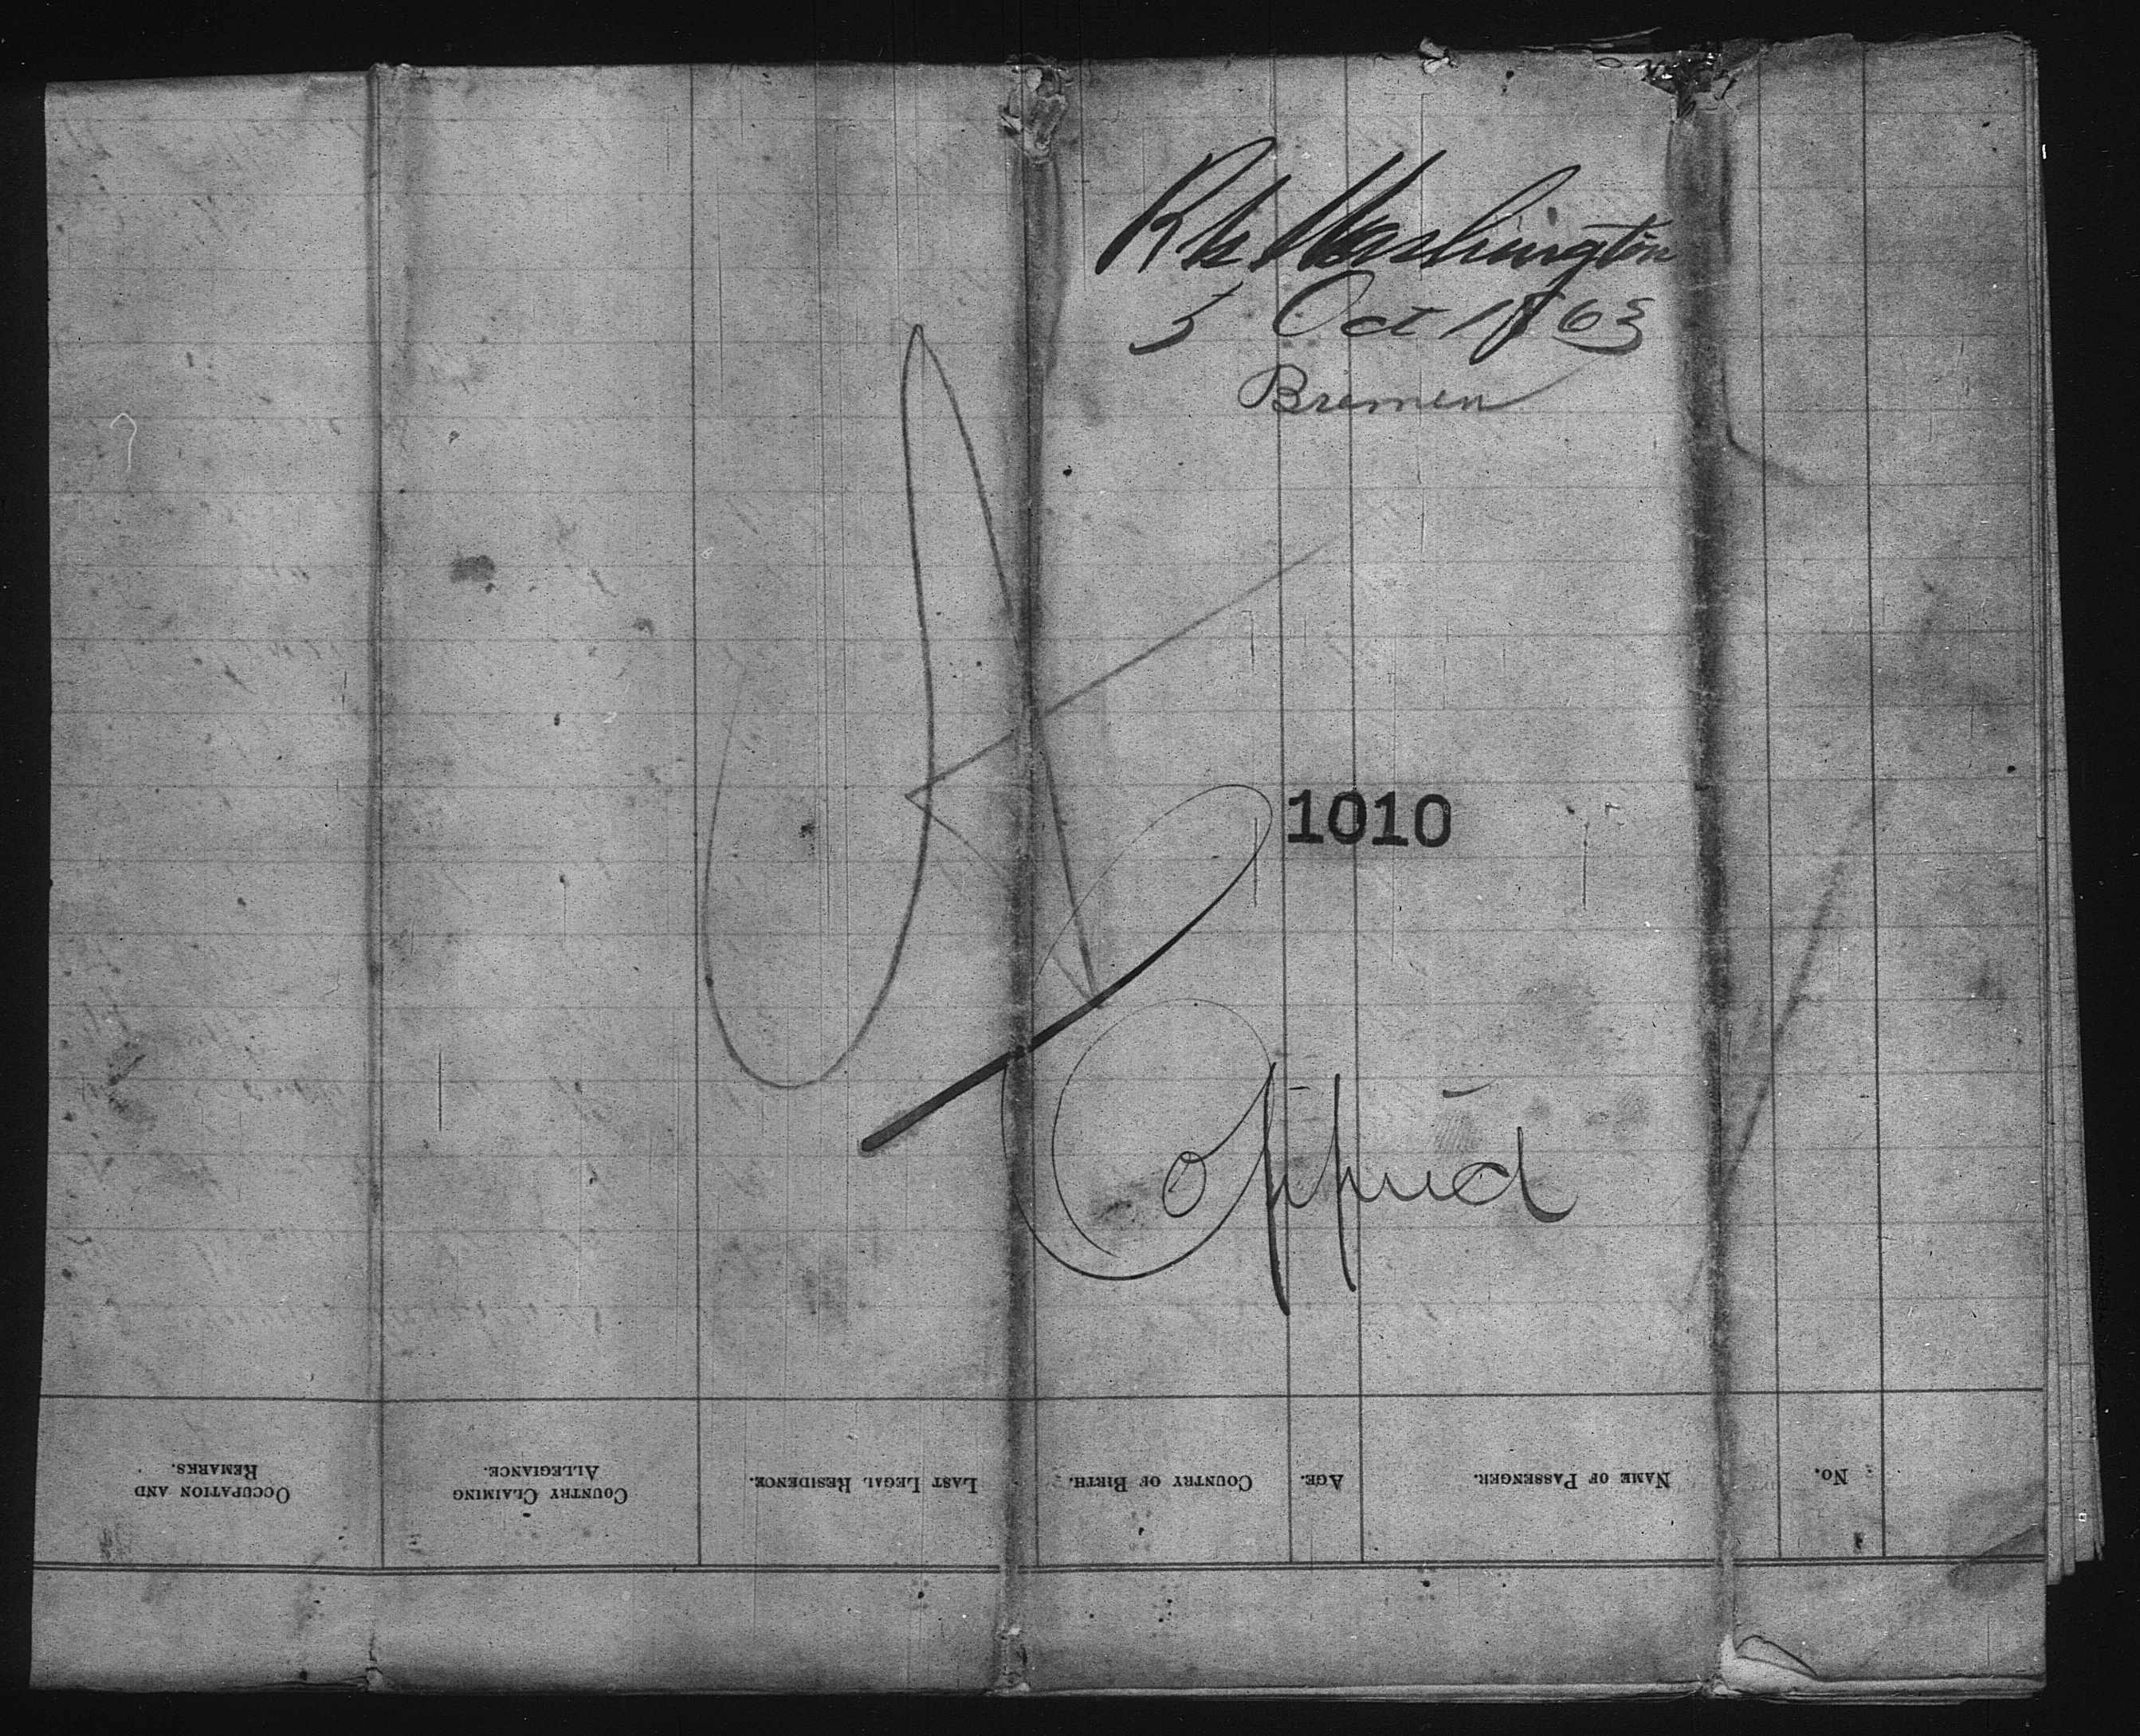 Bk Washington
5 Oct 1863
Bremen
1010
Coppied
No.
NAME OF PASSENGER.
AGE.
COUNTRY OF BIRTH.
LAST LEGAL RESIDENCE.
COUNTRY CLAIMING
ALLEGIANCE.
OCCUPATION AND
REMARKS.